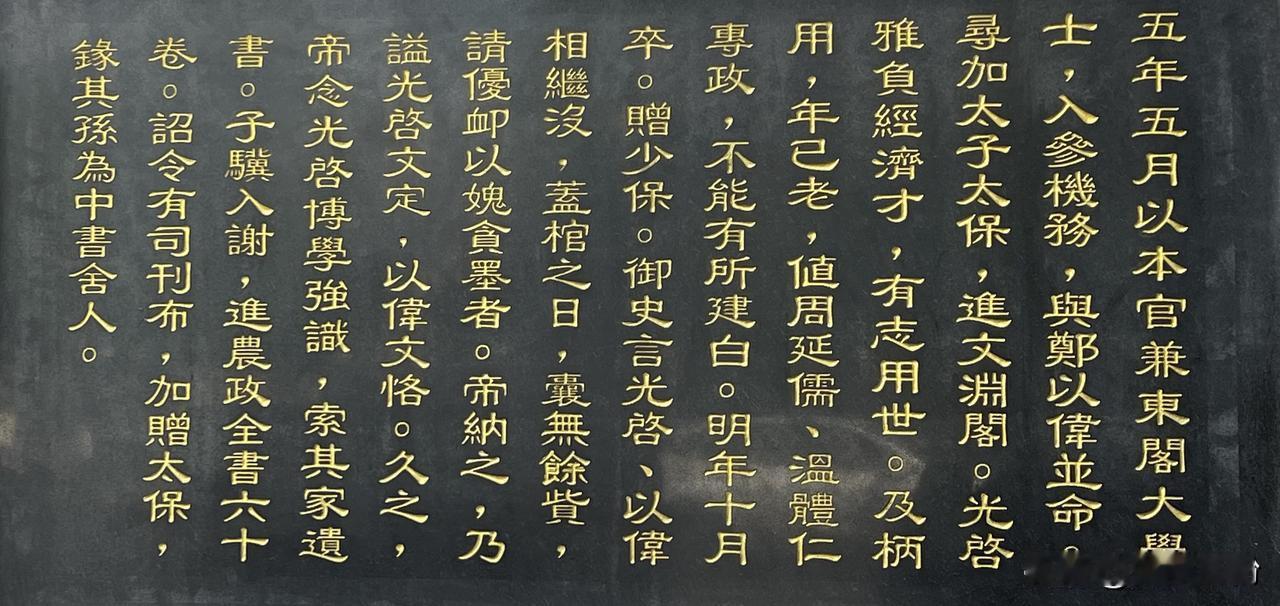 五年五月以本官兼東閣大學
士，入參機務，與鄭以偉並命。
尋加太子太保，進文淵閣。光啓
雅負經濟才，有志用世。及柄
用，年已老，值周延儒、溫體仁
專政，不能有所建白。明年十月
卒。贈少保。御史言光啓、以偉
相繼沒，蓋棺之日，囊無餘貲，
請優卹以媿貪墨者。帝納之，乃
謚光啓文定，以偉文恪。久之，
帝念光啓博學強識，索其家遺
書。子驥入謝，進農政全書六十
卷。詔令有司刊布，加贈太保，
錄其孫為中書舍人。